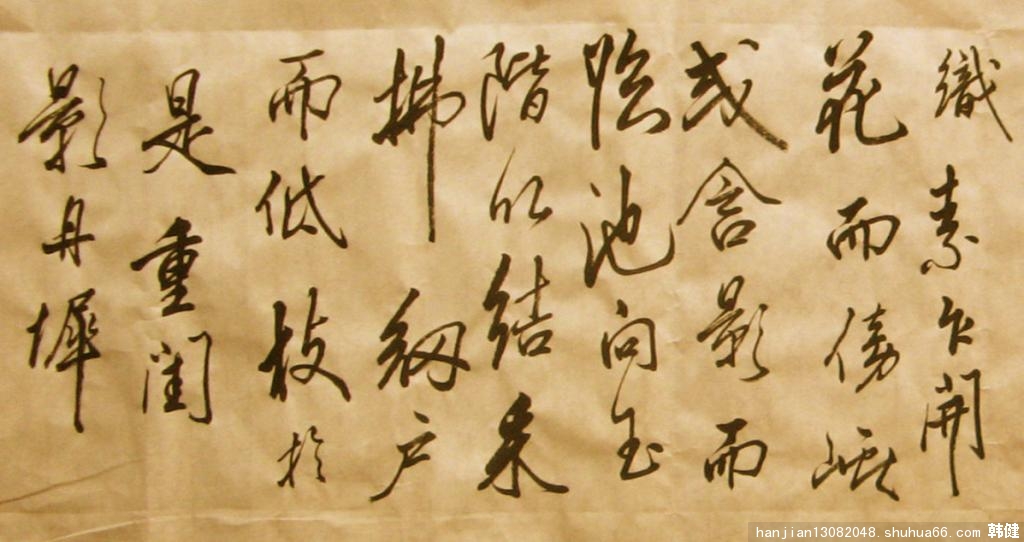 織素乍開
花而傍巘
或含影而
臨池向玉
階以結采
拂綱户
而低枝於
是重閨
影丹墀
hanjian13082048.shuhua66.com 韩健